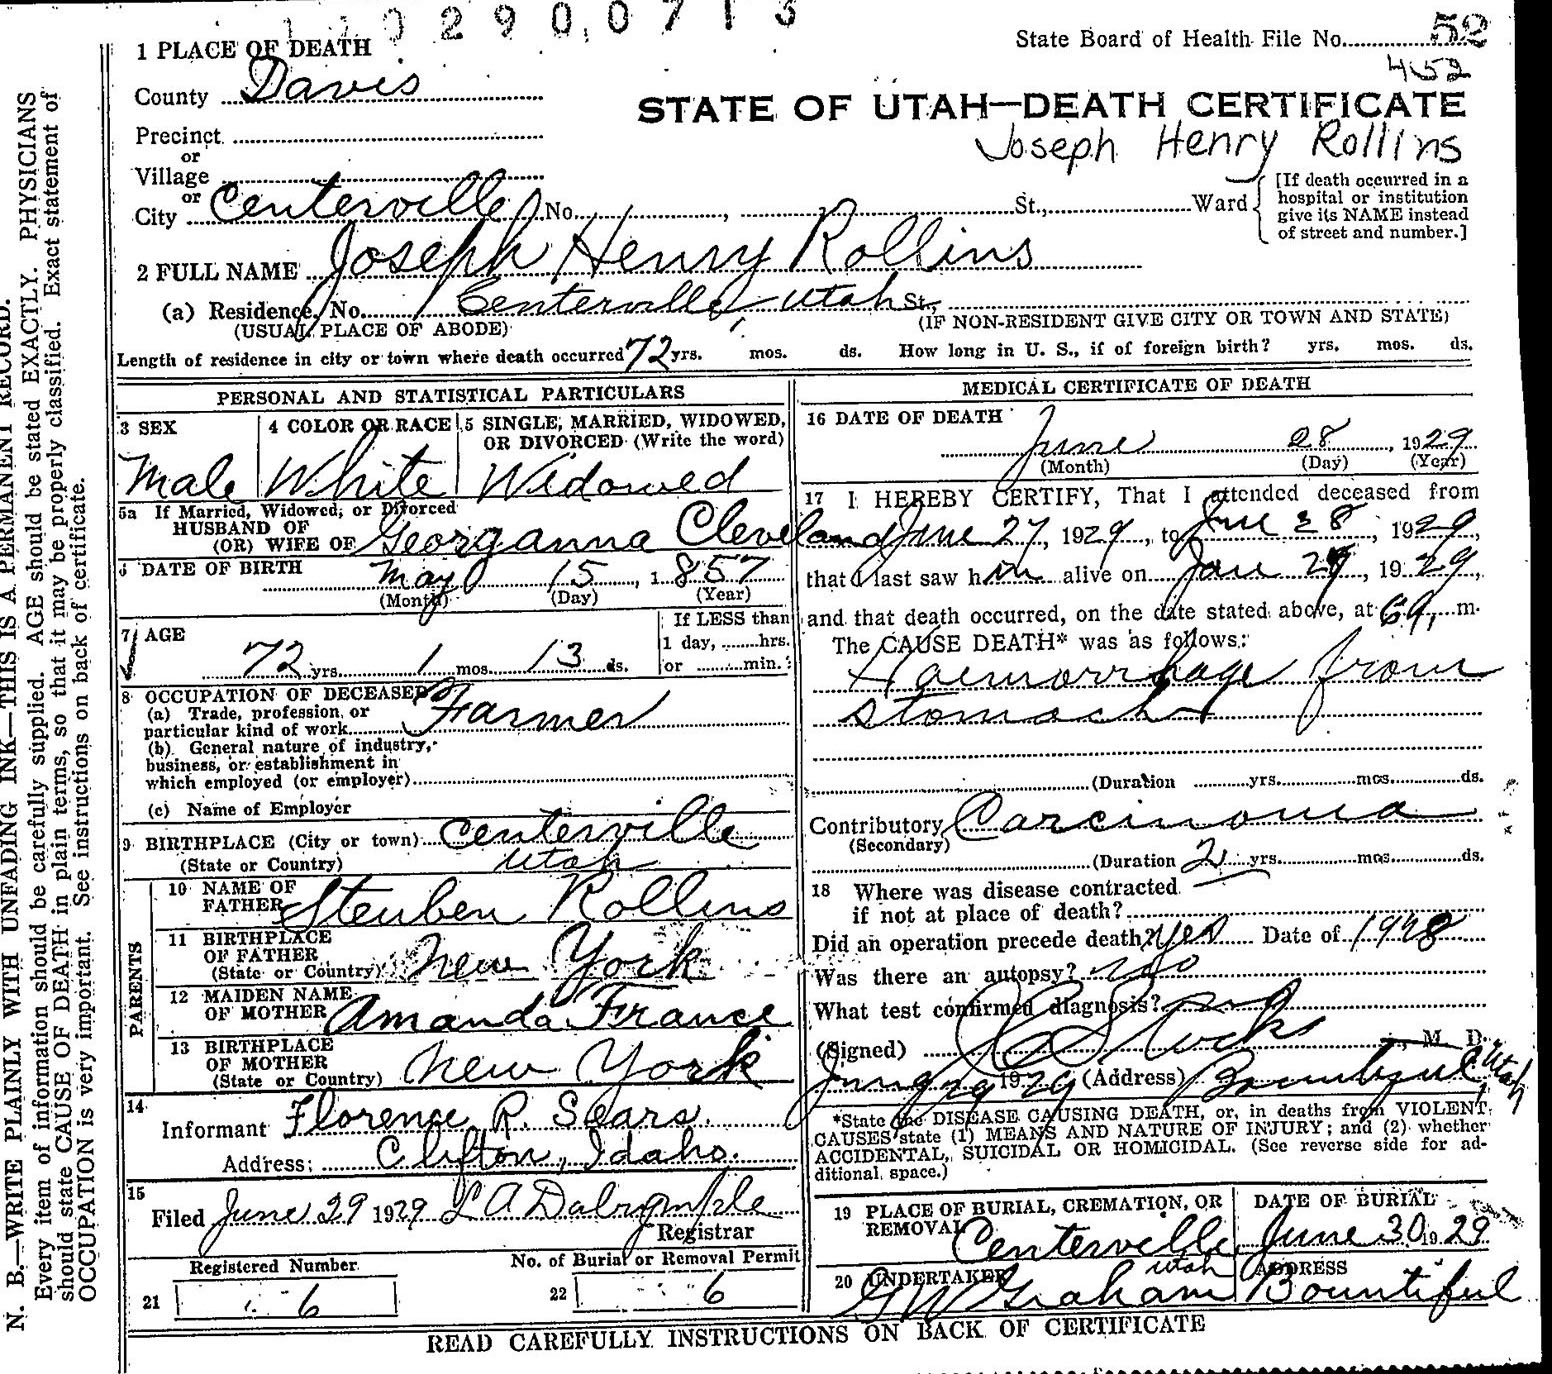 290 0713
State Board of Health File No. 52
452
1 PLACE OF DEATH
County Davis
STATE OF UTAH—DEATH CERTIFICATE
Joseph Henry Rollins
Precinct
or
Village
or
City Centerville No. , St., Ward
[If death occurred in a
hospital or institution
give its NAME instead
of street and number.]
2 FULL NAME Joseph Henry Rollins
(a) Residence, No. Centerville, Utah St.,
(USUAL PLACE OF ABODE) (IF NON-RESIDENT GIVE CITY OR TOWN AND STATE)
Length of residence in city or town where death occurred 72 yrs. mos. ds. How long in U. S., if of foreign birth? yrs. mos. ds.
PERSONAL AND STATISTICAL PARTICULARS
3 SEX
Male
4 COLOR OR RACE
White
5 SINGLE, MARRIED, WIDOWED,
OR DIVORCED (Write the word)
Widowed
5a If Married, Widowed, or Divorced
HUSBAND OF
(OR) WIFE OF Georganna Cleveland
6 DATE OF BIRTH
May 15, 1857
(Month) (Day) (Year)
7 AGE
72 yrs. 1 mos. 13 ds.
If LESS than
1 day, hrs.
or min.
8 OCCUPATION OF DECEASED
(a) Trade, profession, or
particular kind of work Farmer
(b) General nature of industry,
business, or establishment in
which employed (or employer)
(c) Name of Employer
9 BIRTHPLACE (City or town) Centerville
(State or Country) Utah
PARENTS
10 NAME OF
FATHER Steuben Rollins
11 BIRTHPLACE
OF FATHER
(State or Country) New York
12 MAIDEN NAME
OF MOTHER Amanda France
13 BIRTHPLACE
OF MOTHER
(State or Country) New York
14
Informant Florence R. Sears.
Address: Clifton, Idaho.
15
Filed June 29 1929 L A Dalrymple
Registrar
Registered Number
21 6
No. of Burial or Removal Permit
22 6
MEDICAL CERTIFICATE OF DEATH
16 DATE OF DEATH
June 28, 1929
(Month) (Day) (Year)
17 I HEREBY CERTIFY, That I attended deceased from
June 27, 1929, to June 28, 1929,
that I last saw him alive on 1929,
and that death occurred, on the date stated above, at 6 a, m.
The CAUSE DEATH* was as follows:
Haemorrhage from
stomach
(Duration yrs. mos. ds.
Contributory Carcinoma
(Secondary)
(Duration 2 yrs. mos. ds.
18 Where was disease contracted
if not at place of death?
Did an operation precede death? Yes Date of 1928
Was there an autopsy? no
What test confirmed diagnosis?
(Signed) M. D.
1929 (Address) Bountiful, Utah
*State the DISEASE CAUSING DEATH, or, in deaths from VIOLENT
CAUSES state (1) MEANS AND NATURE OF INJURY; and (2) whether
ACCIDENTAL, SUICIDAL OR HOMICIDAL. (See reverse side for ad-
ditional space.)
19 PLACE OF BURIAL, CREMATION, OR
REMOVAL
Centerville, Utah
DATE OF BURIAL
June 30 1929
20 UNDERTAKER
G W Graham
ADDRESS
Bountiful
READ CAREFULLY INSTRUCTIONS ON BACK OF CERTIFICATE
N. B.—WRITE PLAINLY WITH UNFADING INK—THIS IS A PERMANENT RECORD.
Every item of information should be carefully supplied. AGE should be stated EXACTLY. PHYSICIANS
should state CAUSE OF DEATH in plain terms, so that it may be properly classified. Exact statement of
OCCUPATION is very important. See instructions on back of certificate.